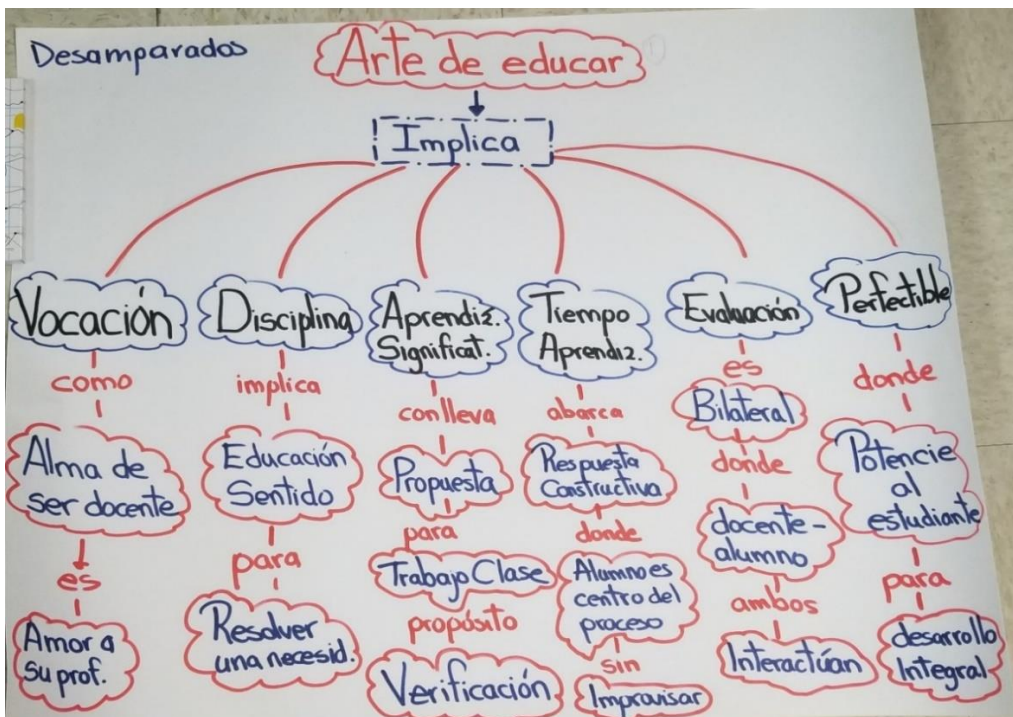 Desamparados
Arte de educar
Implica
Vocación
como
Alma de
ser docente
es
Amor a
su prof.
Disciplina
implica
Educación
Sentido
para
Resolver
una necesid.
Aprendiz.
Significat.
conlleva
Propuesta
para
Trabajo Clase
propósito
Verificación
Tiempo
Aprendiz.
abarca
Respuesta
Constructiva
donde
Alumno es
centro del
proceso
sin
Improvisar
Evaluación
es
Bilateral
donde
docente-
alumno
ambos
Interactúan
Perfectible
donde
Potencie
al
estudiante
para
desarrollo
Integral